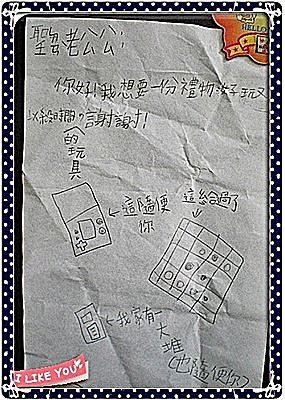 聖老公公:
你好!我想要一份禮物好玩又
以殺時間,謝謝!
(的玩具
←這隨便
你
這給過了
↓
←我家有一
大
堆
(也隨便你)
I LIKE YOU
HELLO